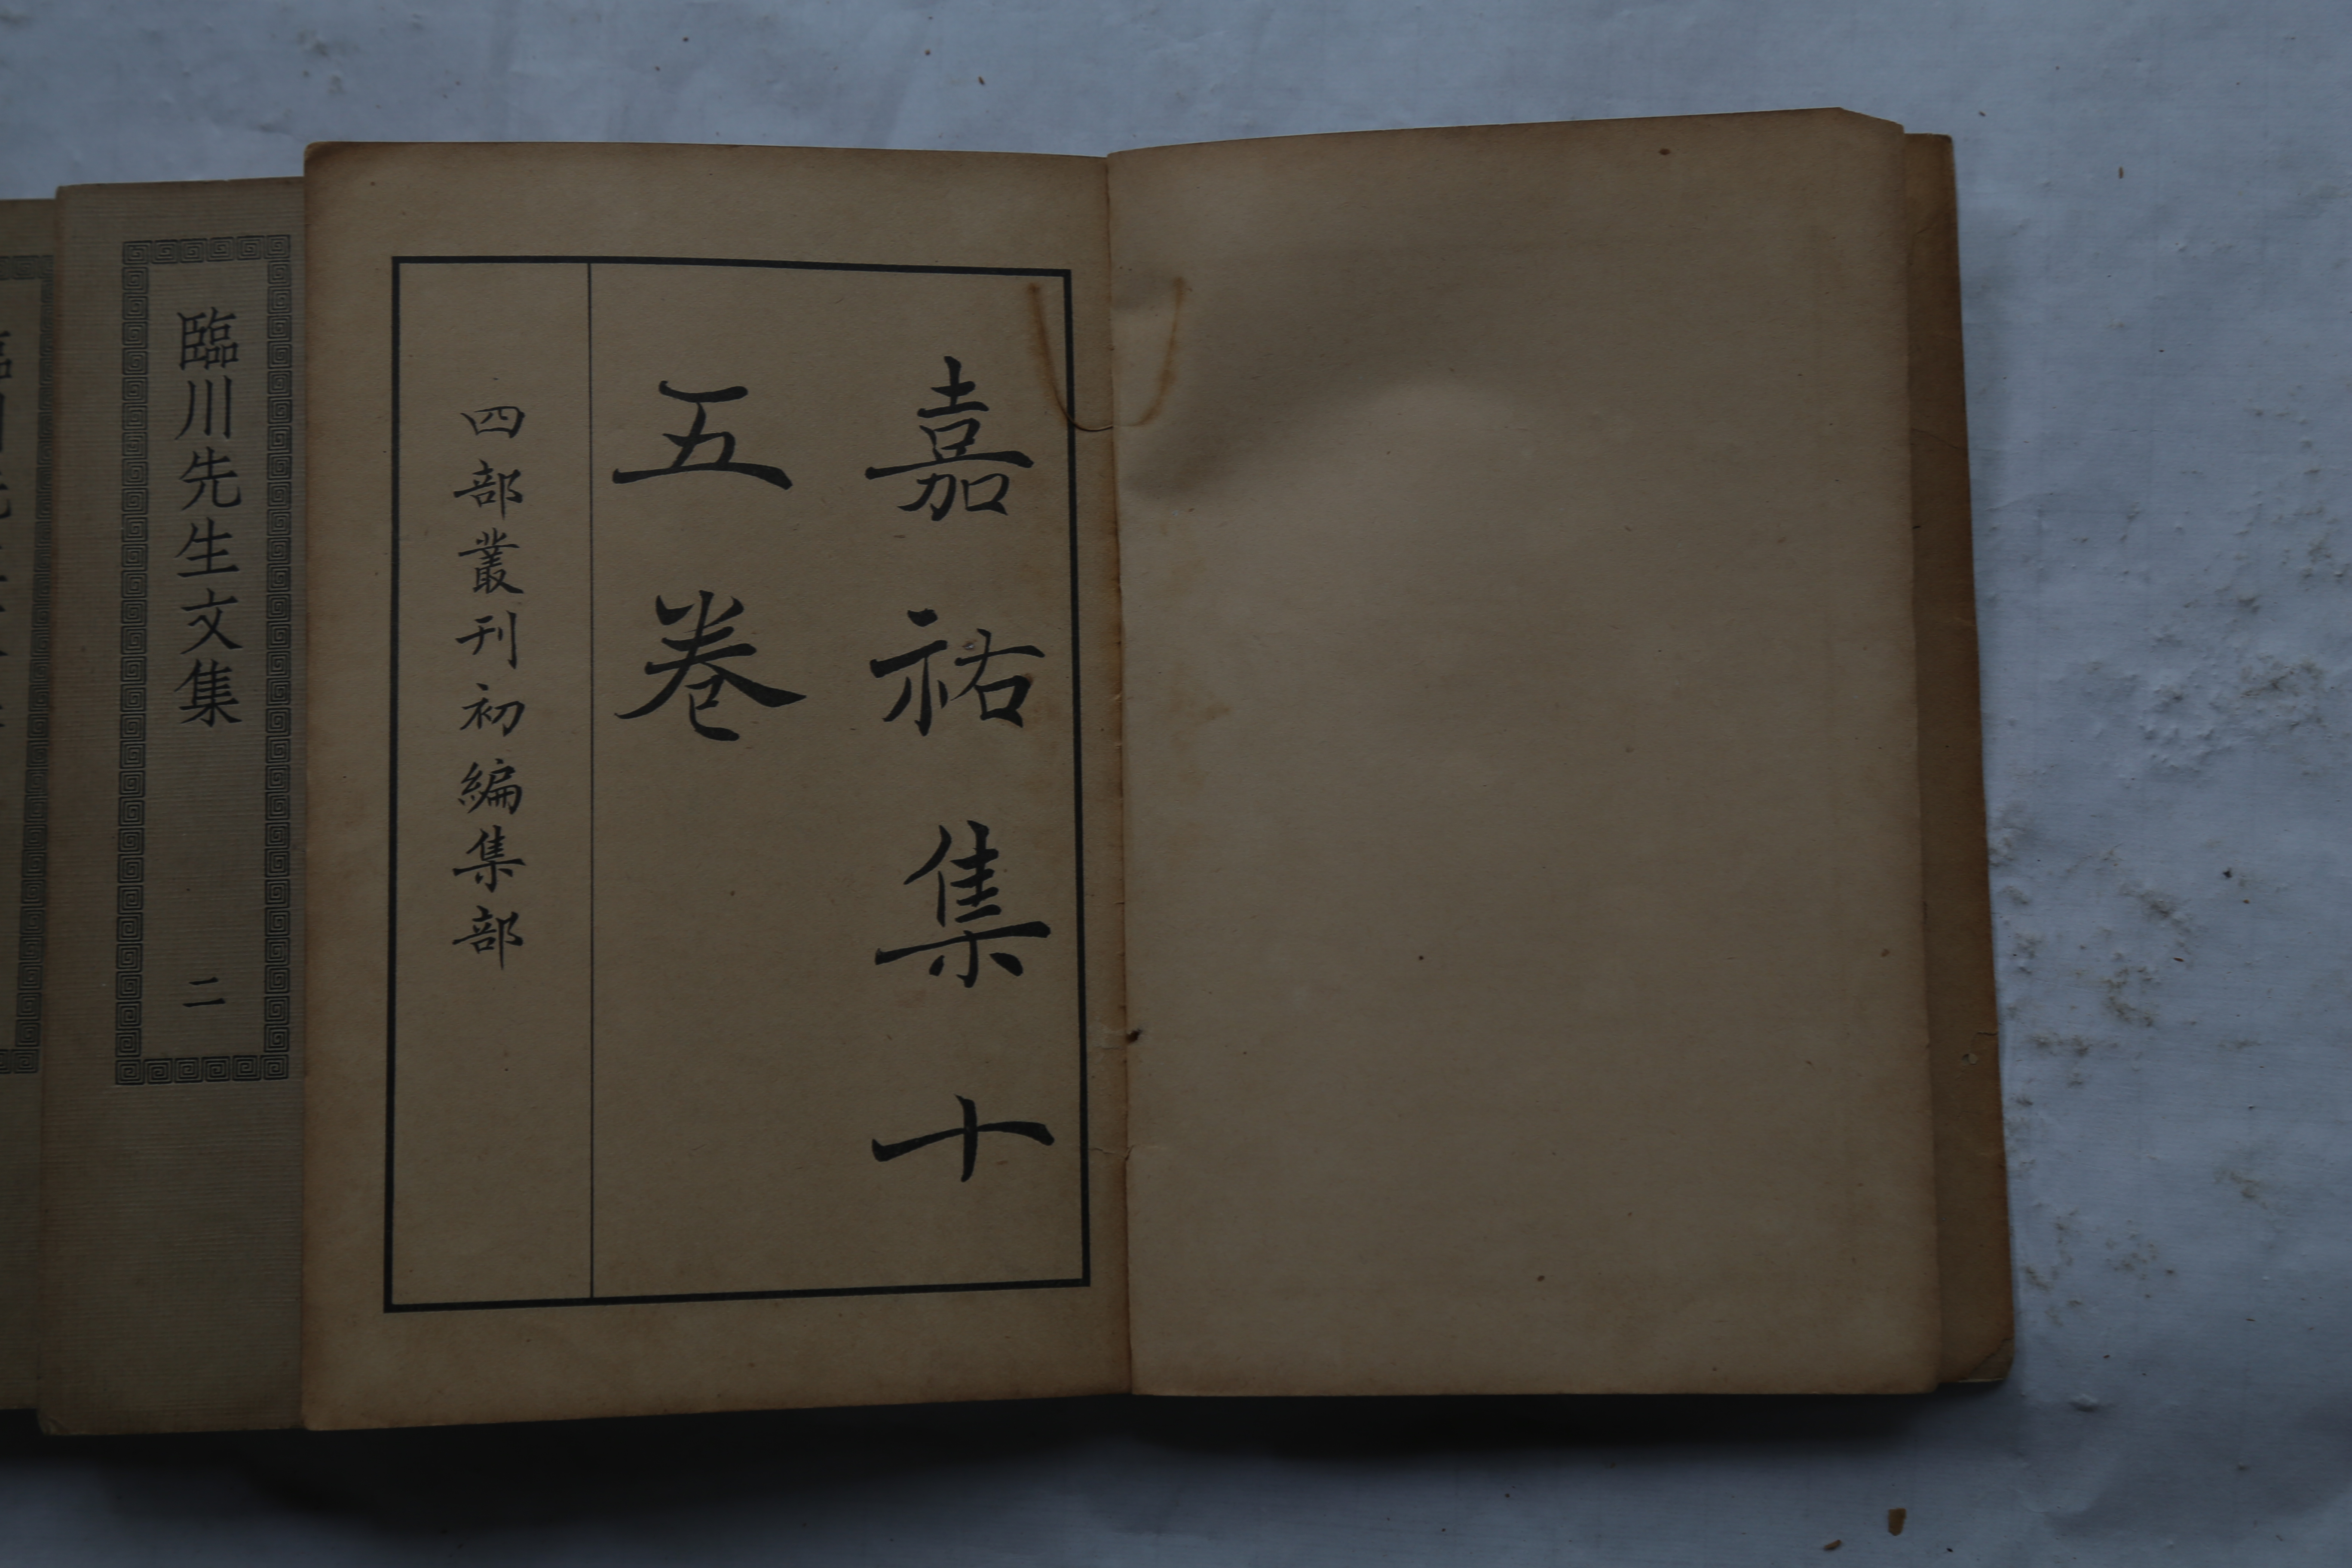 嘉祐集十
五卷
四部叢刊初編集部
臨川先生文集
二